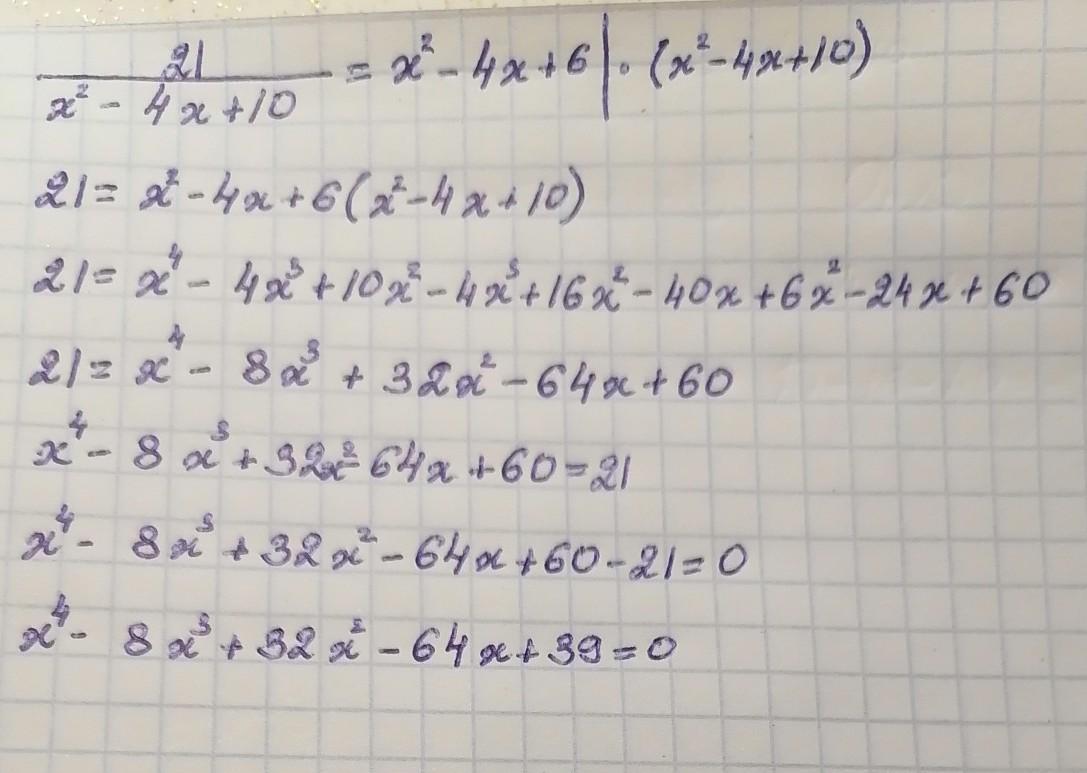 21/(x² - 4x + 10) = x² - 4x + 6 | · (x² - 4x + 10)
21 = x² - 4x + 6(x² - 4x + 10)
21 = x⁴ - 4x³ + 10x² - 4x³ + 16x² - 40x + 6x² - 24x + 60
21 = x⁴ - 8x³ + 32x² - 64x + 60
x⁴ - 8x³ + 32x² - 64x + 60 = 21
x⁴ - 8x³ + 32x² - 64x + 60 - 21 = 0
x⁴ - 8x³ + 32x² - 64x + 39 = 0